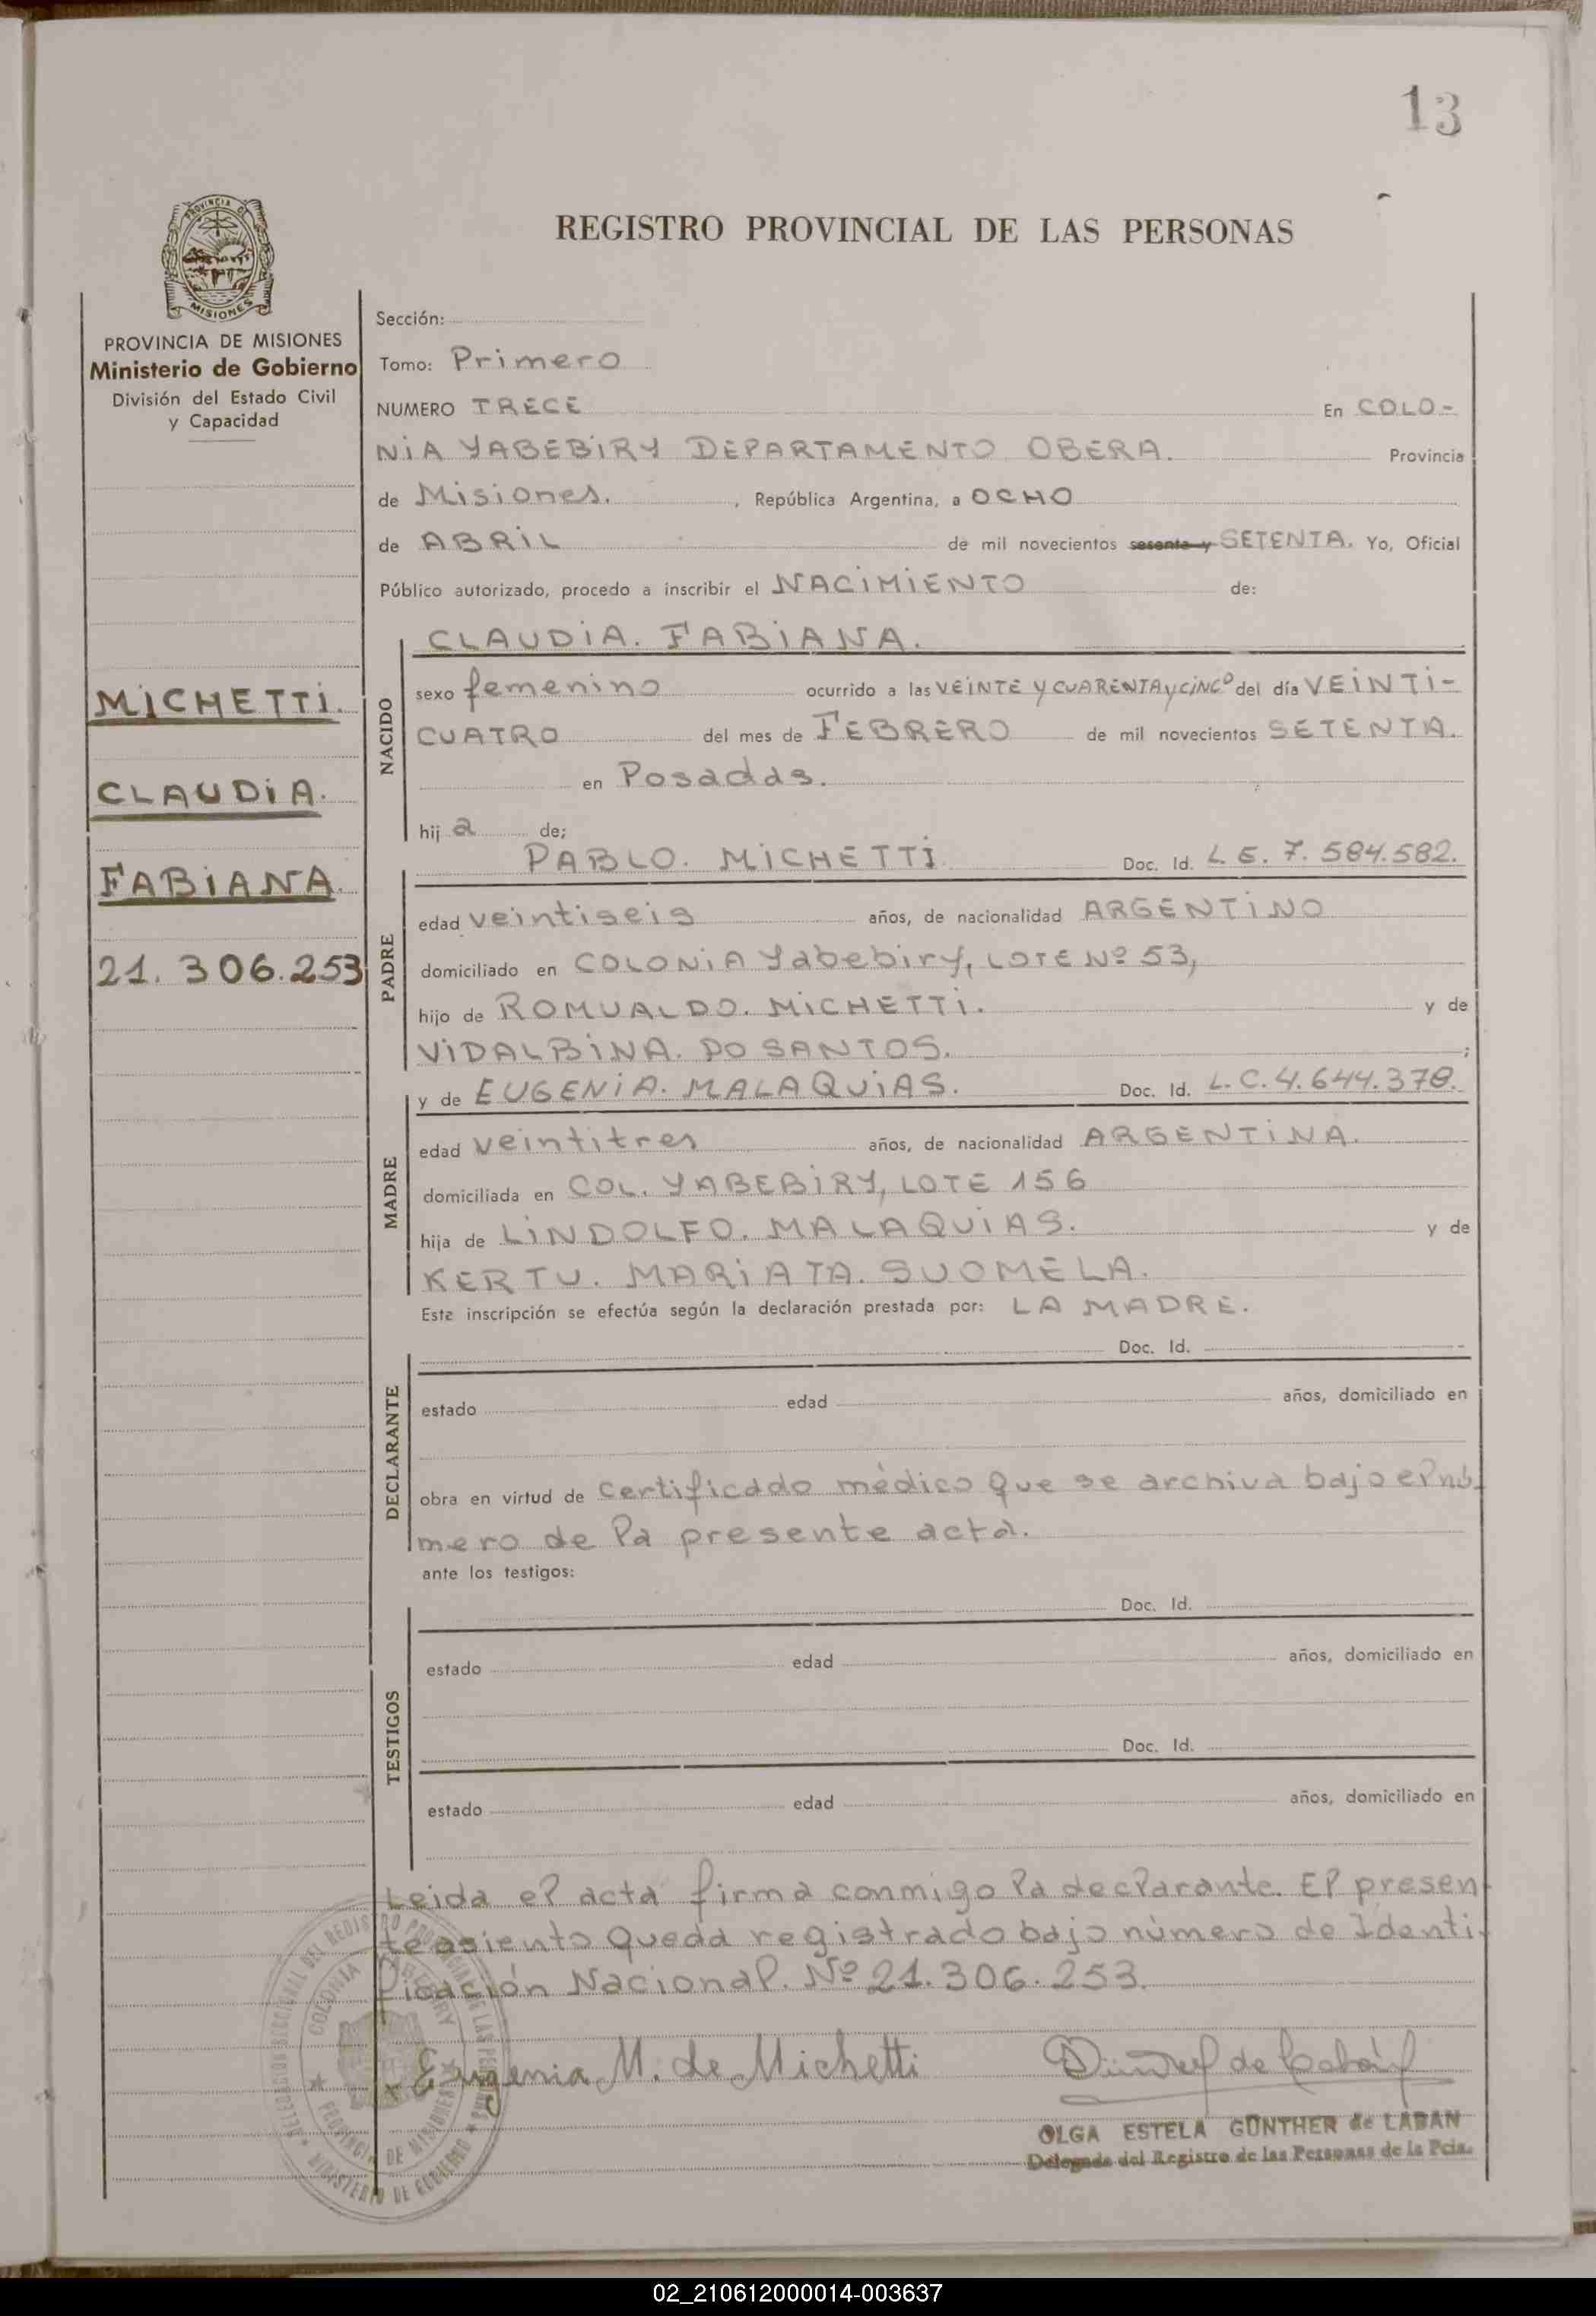 13
PROVINCIA DE
MISIONES
REGISTRO PROVINCIAL DE LAS PERSONAS
PROVINCIA DE MISIONES
Ministerio de Gobierno
División del Estado Civil
y Capacidad
MiCHETTi.
CLAUDiA.
FABiANA.
21.306.253
Sección:
Tomo: Primero
NUMERO TRECE En COLO-
NiA YABEBiRY DEPARTAMENTO OBERA. Provincia
de Misiones. , República Argentina, a OCHO
de ABRiL de mil novecientos sesenta y SETENTA. Yo, Oficial
Público autorizado, procedo a inscribir el NACiMiENTO de:
CLAUDiA. FABiANA.
NACIDO
sexo femenino ocurrido a las VEiNTE Y CUARENTA y CiNCO del día VEiNTi-
CUATRO del mes de FEBRERO de mil novecientos SETENTA.
en Posadas.
hij a de;
PABLO. MiCHETTi Doc. Id. L E. 7. 584.582.
PADRE
edad veintiseis años, de nacionalidad ARGENTiNO
domiciliado en COLONiA Yabebiry, LOTE Nº 53,
hijo de ROMUALDO. MiCHETTi. y de
ViDALBiNA. DO SANTOS. ;
y de EUGENiA. MALAQUiAS. Doc. Id. L.C.4.644.378.
MADRE
edad veintitres años, de nacionalidad ARGENTiNA.
domiciliada en COL. YABEBiRY, LOTE 156
hija de LiNDOLFO. MALAQUiAS. y de
KERTU. MARiATA. SUOMELA.
Este inscripción se efectúa según la declaración prestada por: LA MADRE.
Doc. Id.
DECLARANTE
estado edad años, domiciliado en
obra en virtud de certificado médico que se archiva bajo el nú-
mero de la presente acta.
ante los testigos:
Doc. Id.
TESTIGOS
estado edad años, domiciliado en
Doc. Id.
estado edad años, domiciliado en
Leida el acta firma conmigo la declarante. El presen-
te asiento queda registrado bajo número de Identi-
ficación Nacional. Nº 21.306.253.
Eugenia M. de Michetti
OLGA ESTELA GÜNTHER de LABAN
Delegada del Registro de las Personas de la Pcia.
COLONIA YABEBIRY
PROVINCIA DE MISIONES
MINISTERIO DE GOBIERNO
02_210612000014-003637